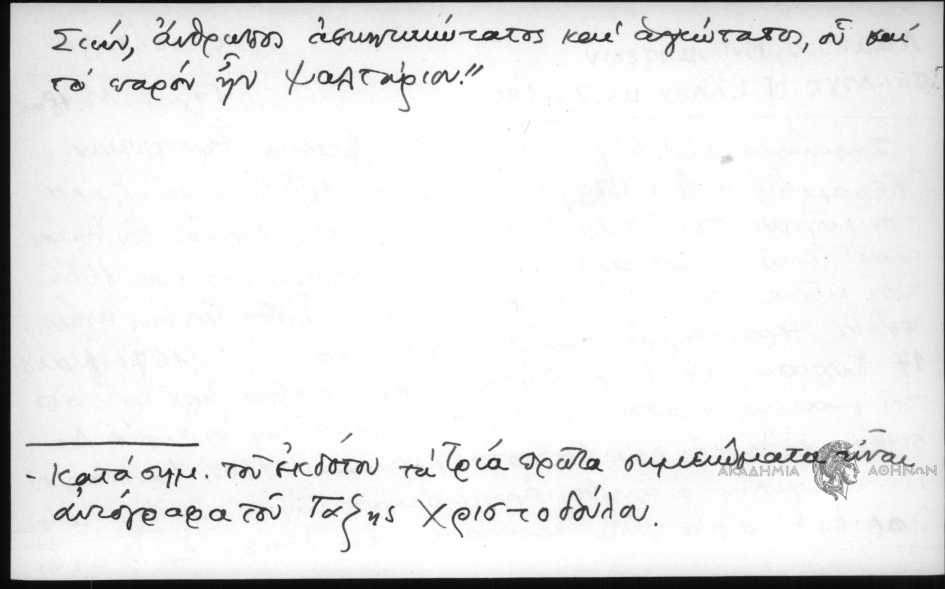 Σιών, ἄνθρωπος ἀσκητικώτατος καὶ ἁγιώτατος, οὗ καὶ
τὸ παρόν ἦν ψαλτάριον."
- Κατά σημ. τοῦ ἐκδότου τὰ τρία πρῶτα σημειώματα εἶναι
ἀυτόγραφα τοῦ Γάζης Χριστοδούλου.
ΑΚΑΔΗΜΙΑ ΑΘΗΝΩΝ